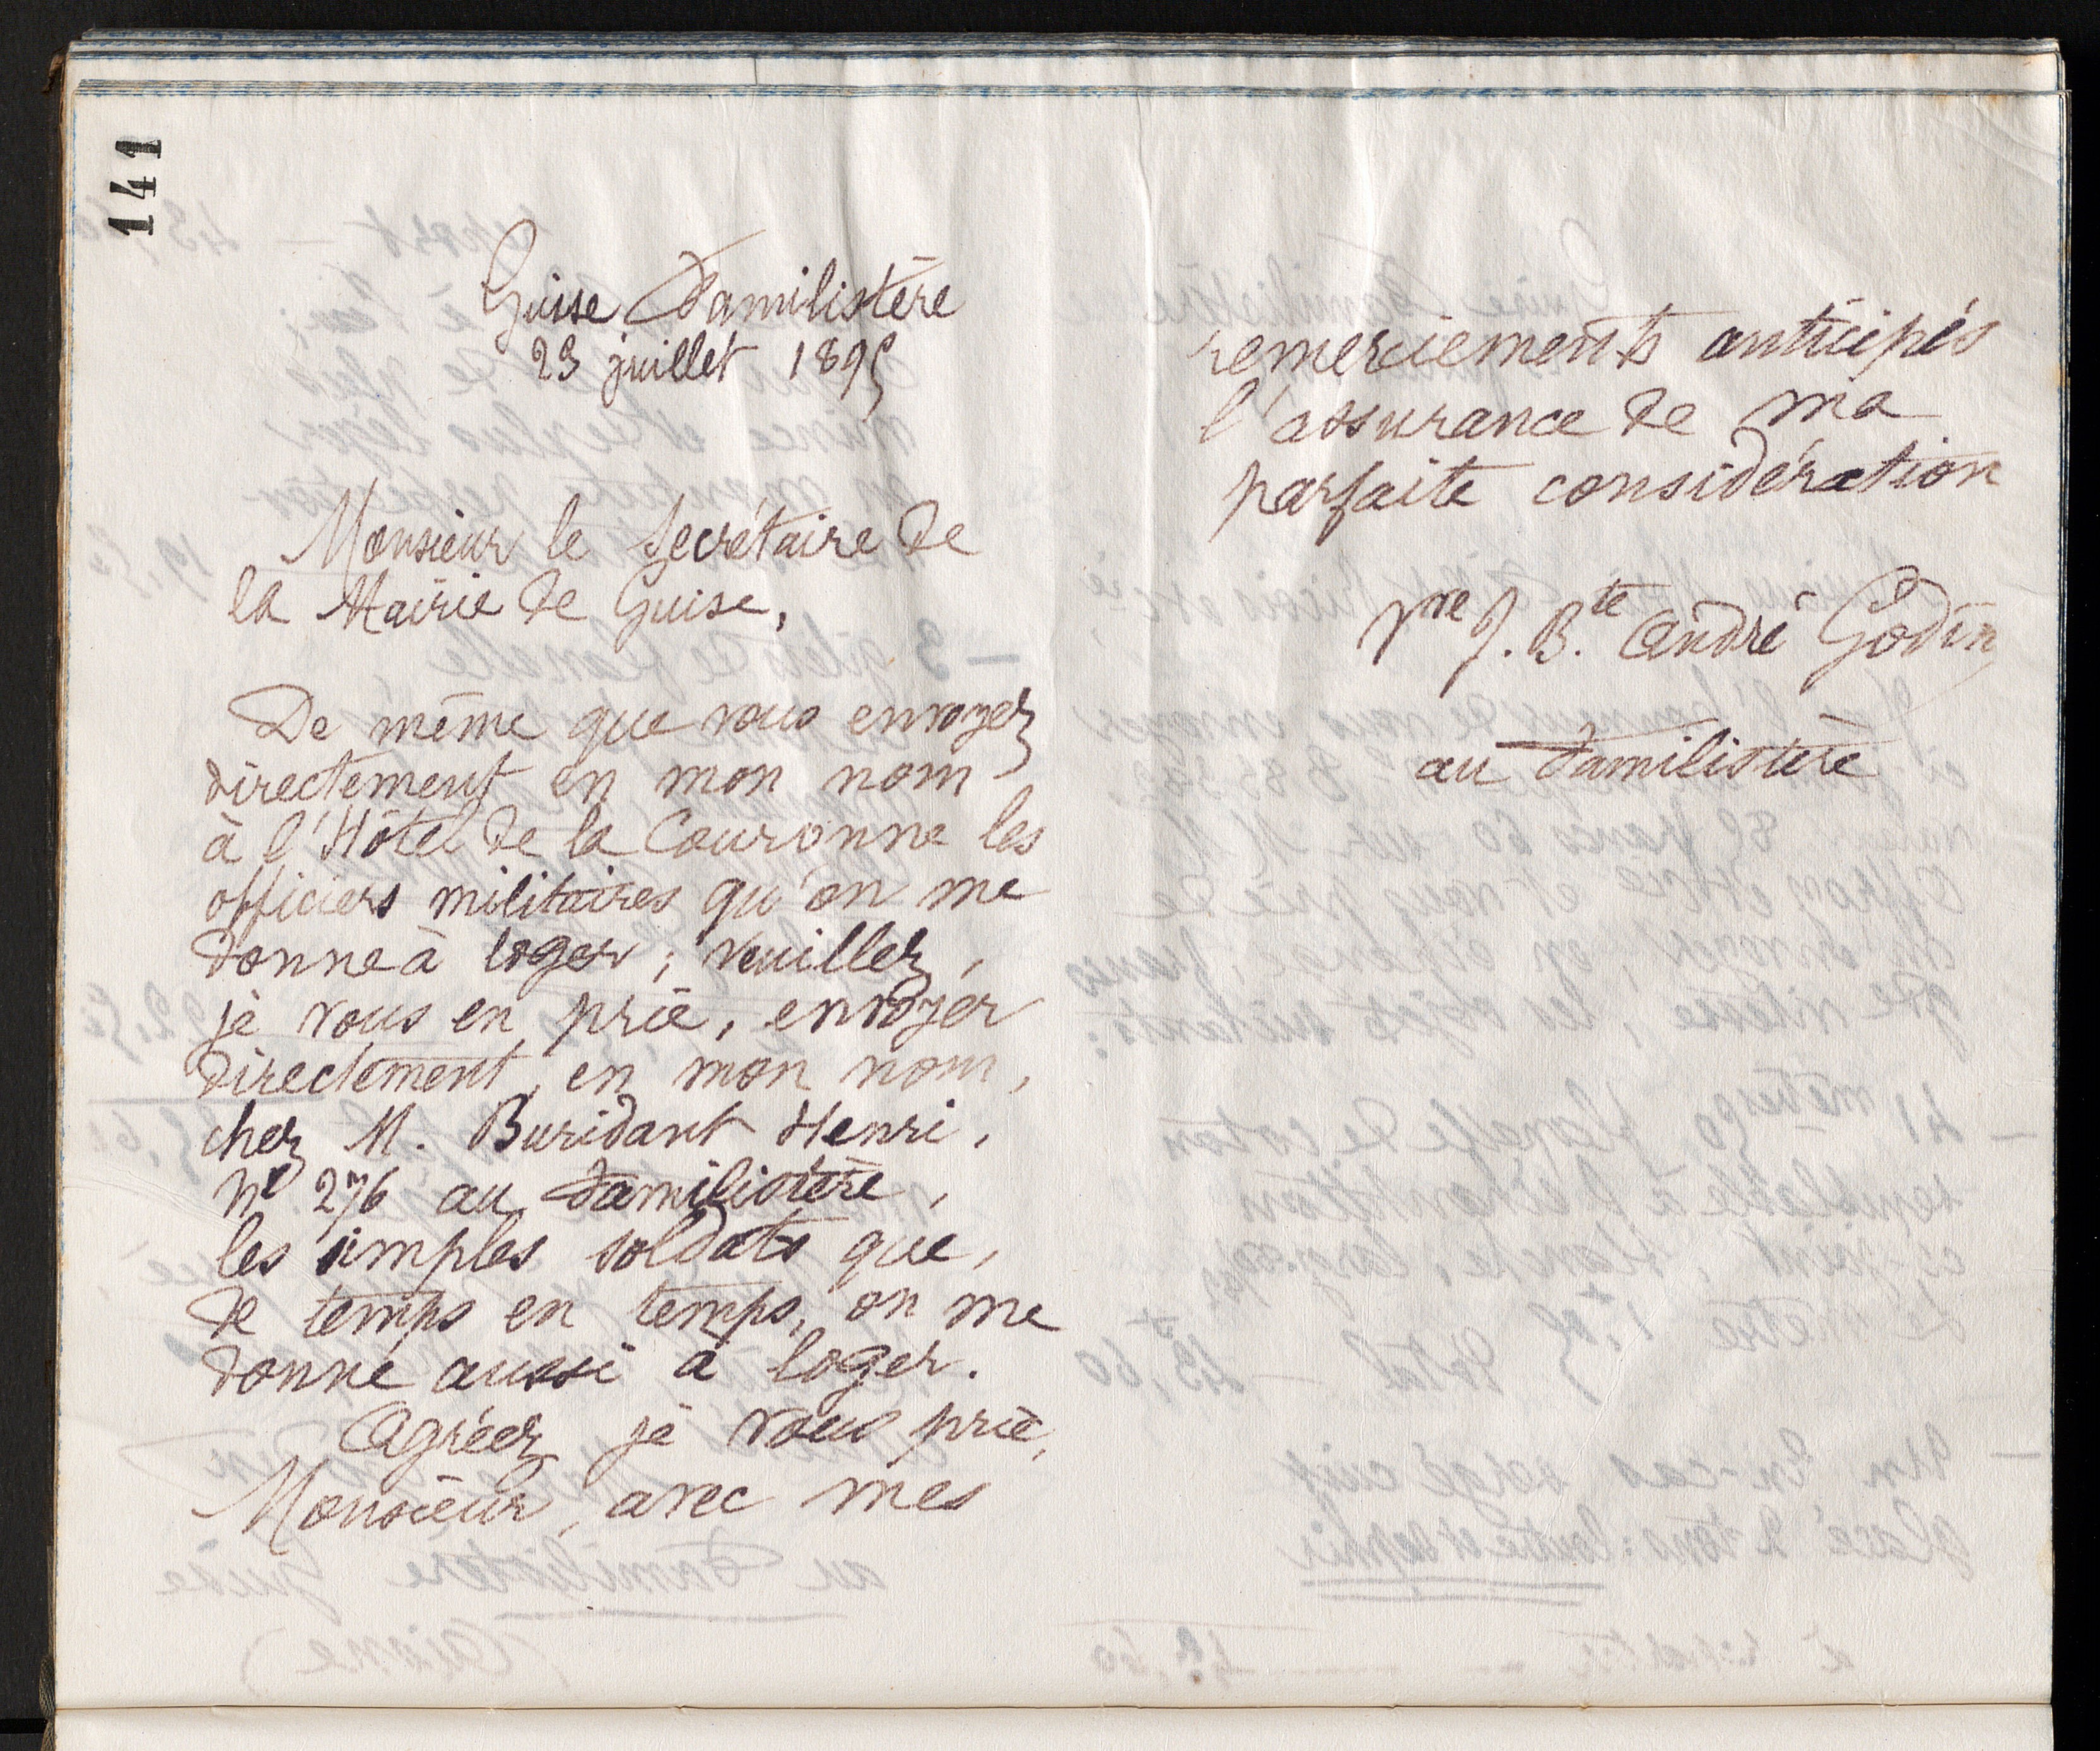 141
Guise Familistère
23 juillet 1895
Monsieur le Secrétaire de
la Mairie de Guise,
De même que vous envoyez
directement en mon nom
à l'Hôtel de la Couronne les
officiers militaires qu'on me
donne à loger ; veuillez,
je vous en prie, envoyer
directement, en mon nom,
chez M. Buridant Henri,
N° 276 au Familistère,
les simples soldats que,
de temps en temps, on me
donne aussi à loger.
Agréez, je vous prie,
Monsieur, avec mes
remerciements anticipés
l'assurance de ma
parfaite considération
Vve J. Bte André Godin
au Familistère